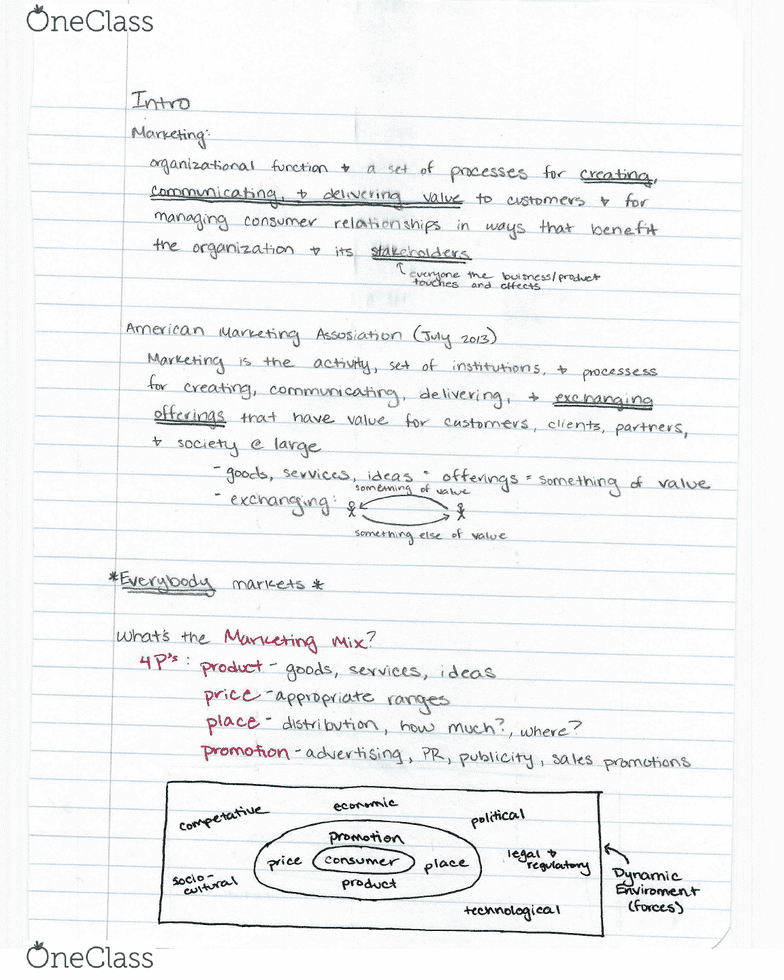 OneClass
Intro
Marketing:
organizational function + a set of processes for creating,
communicating, + delivering value to customers + for
managing consumer relationships in ways that benefit
the organization + its stakeholders
everyone the buisness/product
touches and effects
American Marketing Assosiation (July 2013)
Marketing is the activity, set of institutions, + processess
for creating, communicating, delivering, + exchanging
offerings that have value for customers, clients, partners,
+ society @ large
- goods, services, ideas = offerings = something of value
- exchanging:
something of value
something else of value
*Everybody markets*
What's the Marketing Mix?
4 P's: product - goods, services, ideas
price - appropriate ranges
place - distribution, how much?, where?
promotion - advertising, PR, publicity, sales promotions
competative
economic
political
promotion
price
consumer
place
product
legal +
regulatory
socio-
cultural
technological
Dynamic
Enviroment
(forces)
OneClass